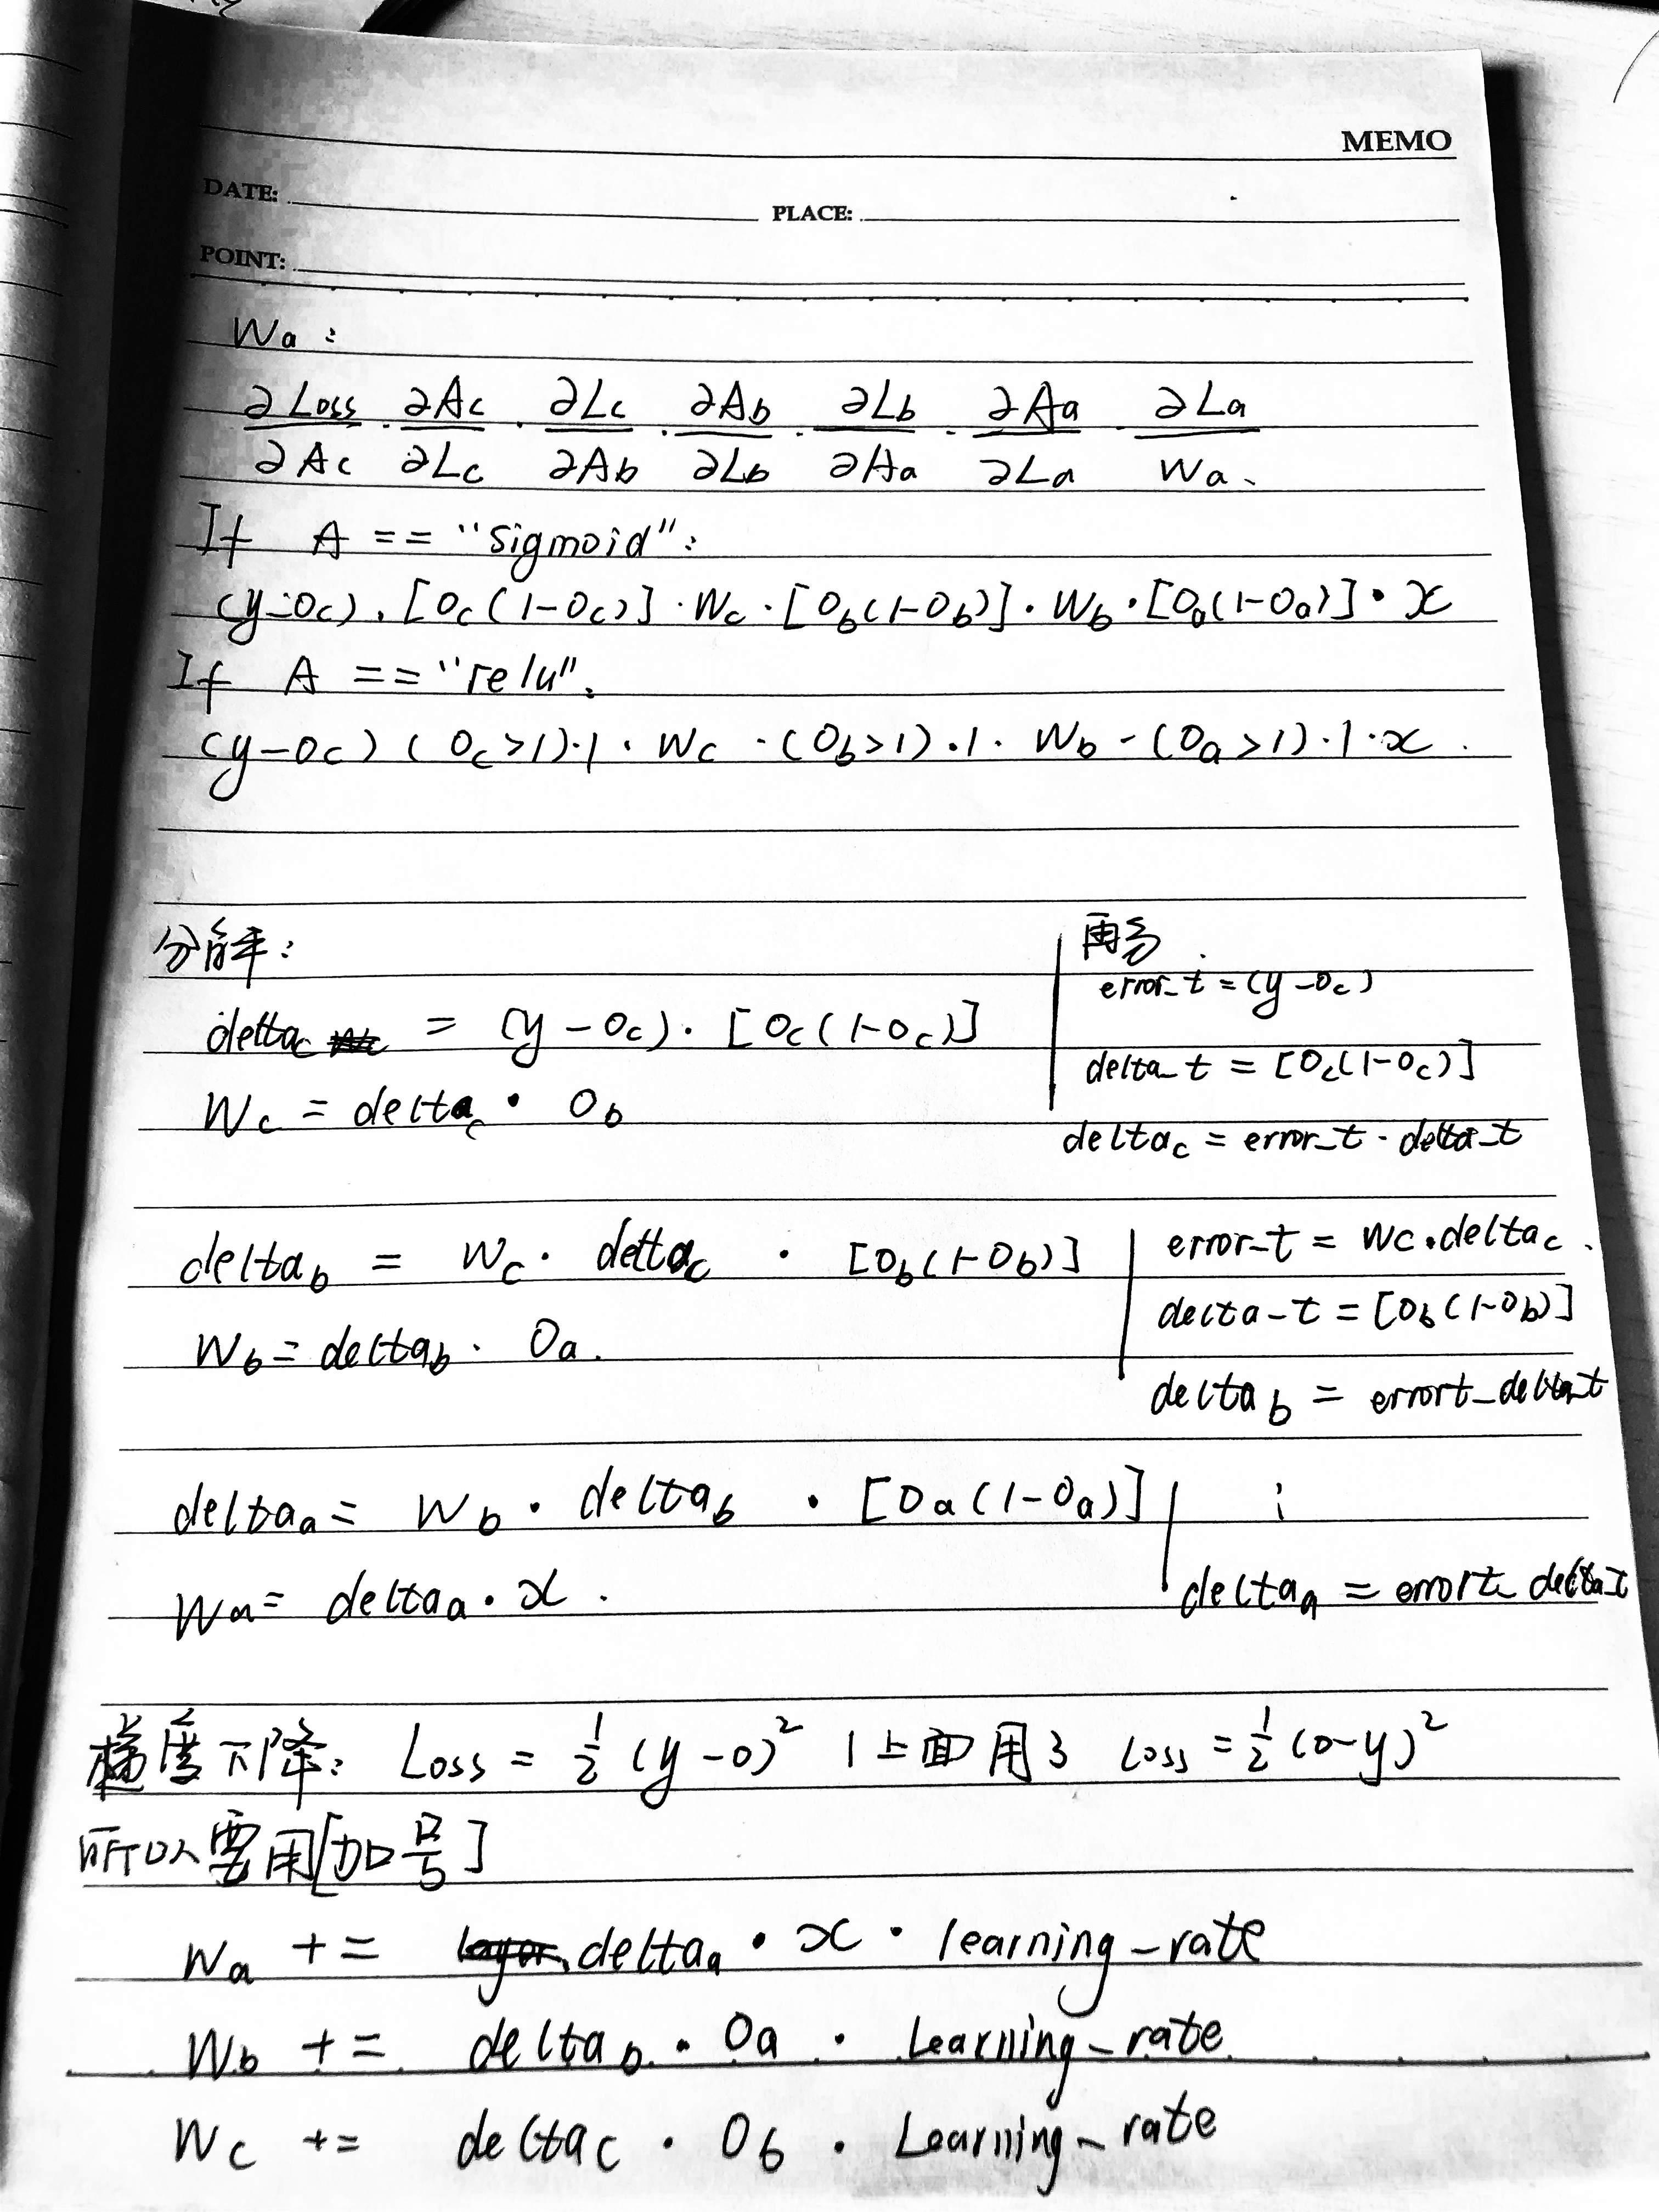 MEMO
DATE:
PLACE:
POINT:
Wa:
∂Loss/∂Ac · ∂Ac/∂Lc · ∂Lc/∂Ab · ∂Ab/∂Lb · ∂Lb/∂Aa · ∂Aa/∂La · ∂La/Wa.
If A == "sigmoid":
(y-Oc)·[Oc(1-Oc)]·Wc·[Ob(1-Ob)]·Wb·[Oa(1-Oa)]·x
If A == "relu":
(y-Oc)(Oc>1)·1·Wc·(Ob>1)·1·Wb-(Oa>1)·1·x.
分解:
deltac = (y-Oc)·[Oc(1-Oc)]
Wc = deltac · Ob
error_t = (y-Oc)
delta_t = [Oc(1-Oc)]
deltac = error_t · delta_t
deltab = Wc · deltac · [Ob(1-Ob)]
Wb = deltab · Oa.
error_t = Wc·deltac.
delta-t = [Ob(1-Ob)]
deltab = errort_delta_t
deltaa = Wb · deltab · [Oa(1-Oa)]
Wa = deltaa · x.
⋮
deltaa = errort_delta_t
梯度下降: Loss = 1/2 (y-o)² | 上面用了 Loss = 1/2 (o-y)²
所以要用[加号]
Wa += deltaa · x · learning_rate
Wb += deltab · Oa · Learning_rate
Wc += deltac · Ob · Learning_rate